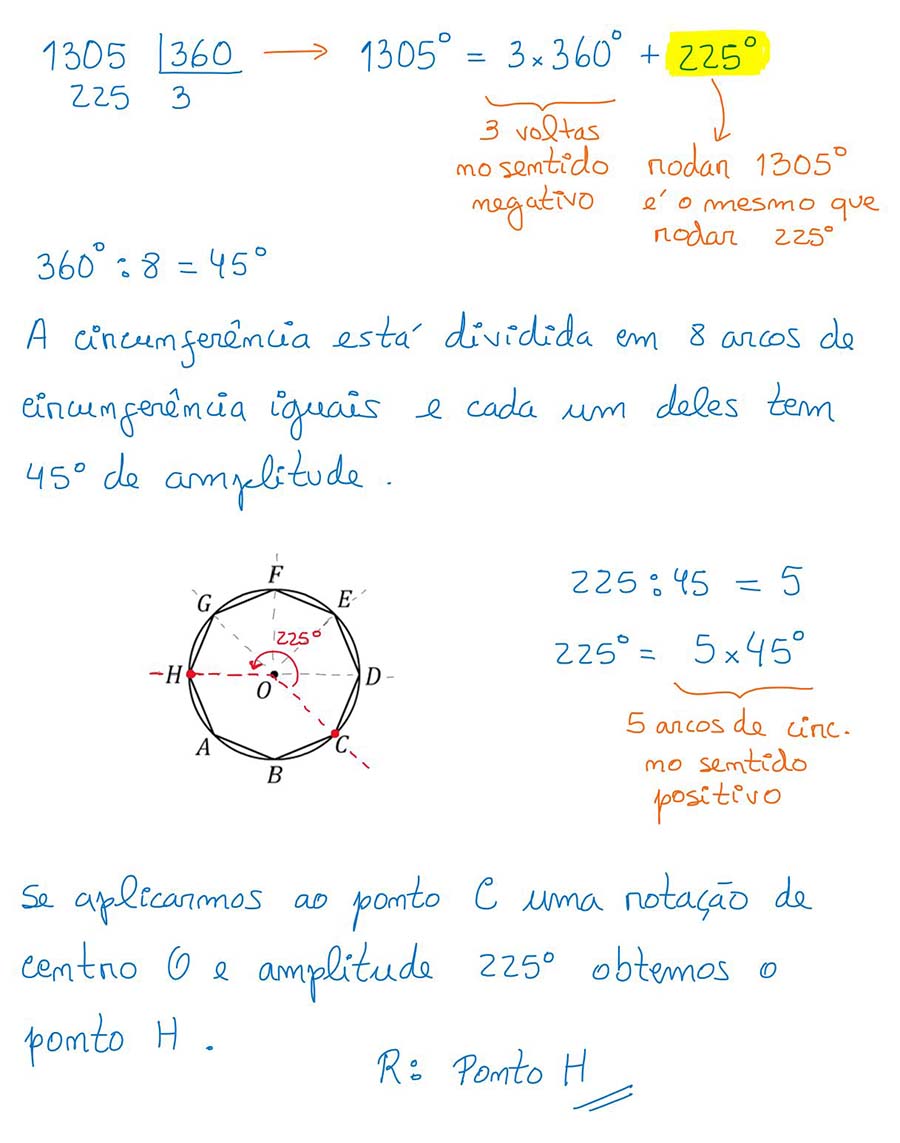 1305 360 → 1305° = 3×360° + 225°
225 3
3 voltas
no sentido
negativo
rodar 1305°
é o mesmo que
rodar 225°
360° : 8 = 45°
A circunferência está dividida em 8 arcos de
circunferência iguais e cada um deles tem
45° de amplitude.
F
G E
225°
H O D
A C
B
225 : 45 = 5
225° = 5×45°
5 arcos de circ.
no sentido
positivo
Se aplicarmos ao ponto C uma rotação de
centro O e amplitude 225° obtemos o
ponto H.
R: Ponto H